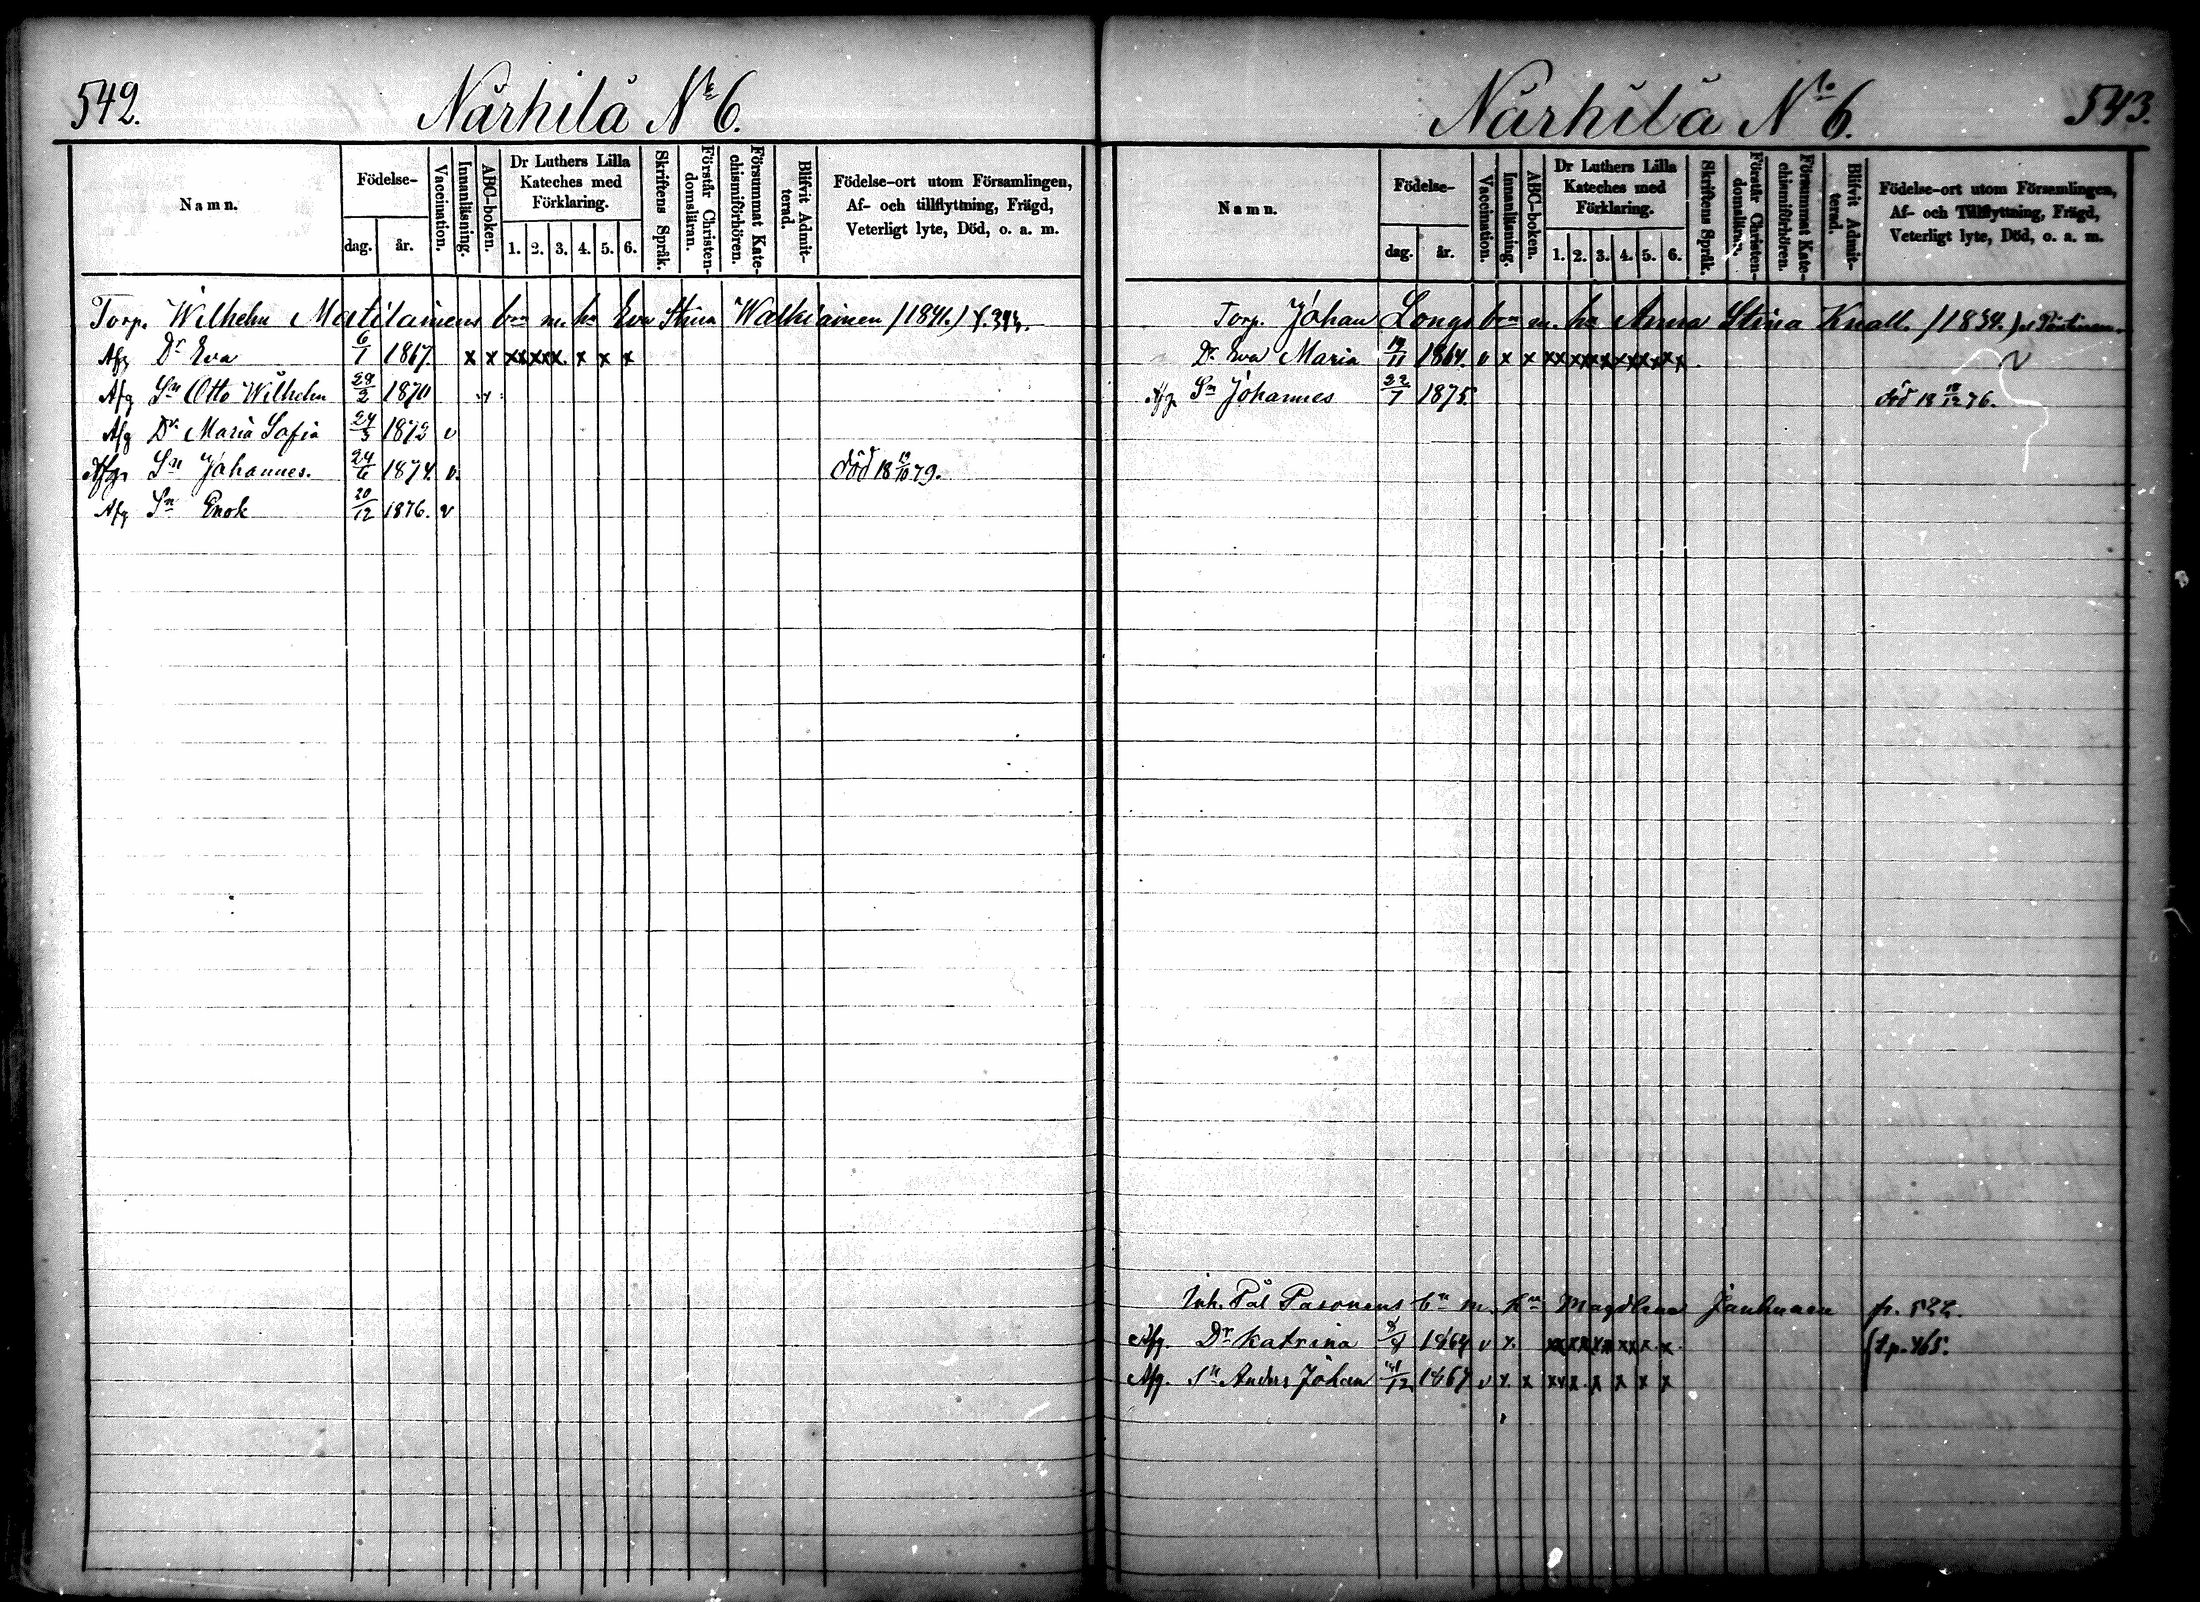 542.
Närhilä No 6.
Namn.
Födelse-
dag.
år.
Vaccination.
Innanläsning.
ABC-boken.
Dr Luthers Lilla
Kateches med
Förklaring.
1. 2. 3. 4. 5. 6.
Skriftens Språk.
Förstår Christen-
domsläran.
Försummat Kate-
chismiförhören.
Blifvit Admit-
terad.
Födelse-ort utom Församlingen,
Af- och tillflyttning, Frägd,
Veterligt lyte, Död, o. a. m.
Torp. Wilhelm Matilainens brn m. hu Eva Stina Walkiainen (1841.)
Afg Dr Eva 6/1 1867. x x xx xx x. x x x
Afg Sn Otto Wilhelm 28/2 1870
Afg Dr Maria Sofia 24/5 1872 v
Afg Sn Johannes. 24/6 1874. v. död 18 12/10 79.
Afg Sn Enok 20/12 1876. v
543.
Närhilä No 6.
Namn.
Födelse-
dag.
år.
Vaccination.
Innanläsning.
ABC-boken.
Dr Luthers Lilla
Kateches med
Förklaring.
1. 2. 3. 4. 5. 6.
Skriftens Språk.
Förstår Christen-
domsläran.
Försummat Kate-
chismiförhören.
Blifvit Admit-
terad.
Födelse-ort utom Församlingen,
Af- och Tillflyttning, Frägd,
Veterligt lyte, Död, o. a. m.
Torp. Johan Longs brn m. hu Anna Stina Knall. (1834.)
Dr Eva Maria 19/11 1864. v x x xx xx xx xx xx xx v
Afg. Sn Johannes 22/7 1875. död 18 18/12 76.
Inh. Pål Pasonens bn m. hu Magdlena Janhunen fr. 522.
Afg. Dr Katrina 1864 v x. xx xx xx xx x. x. t.p. 465.
Afg. Sn Anders Johan 1867 v x. x xx x. x x x x